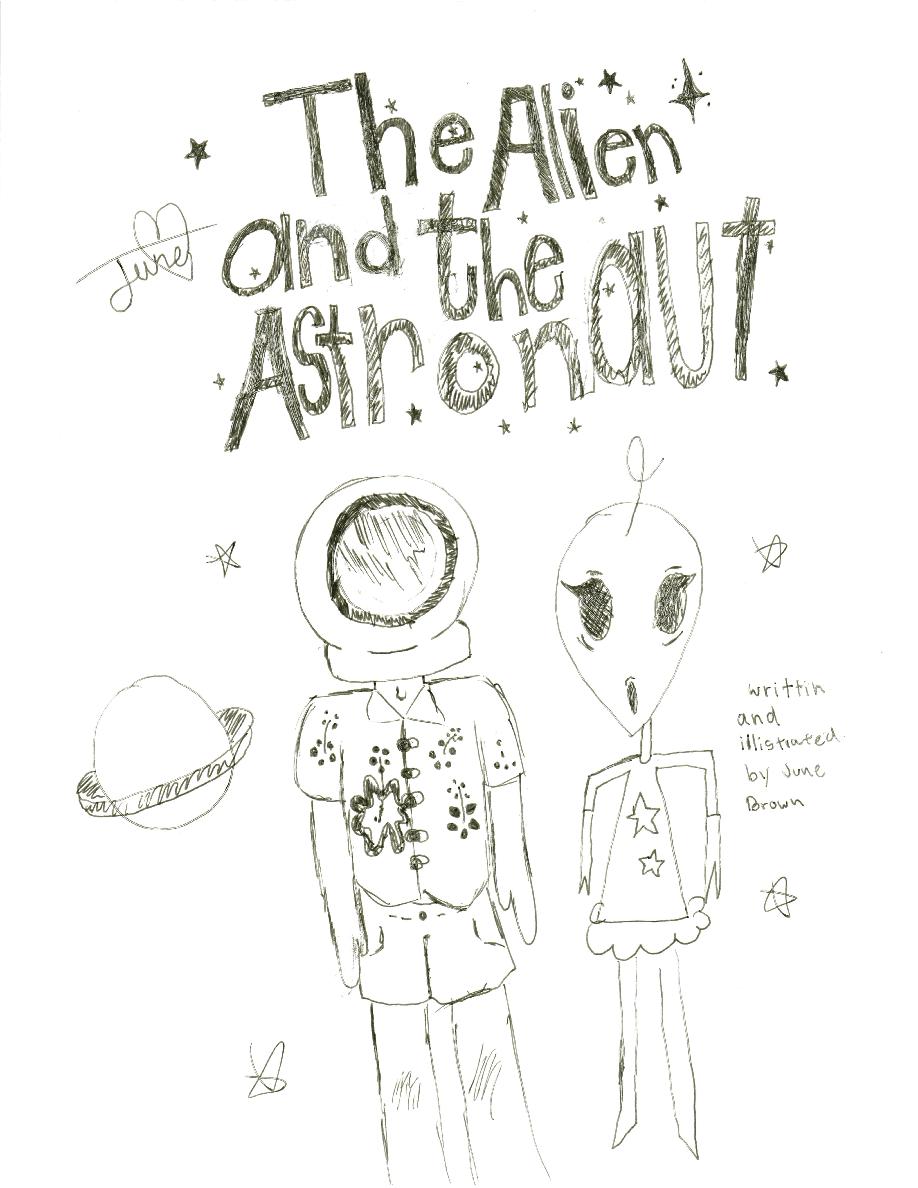 The Alien
and the
June
Astronaut
writtin
and
illistrated
by June
Brown